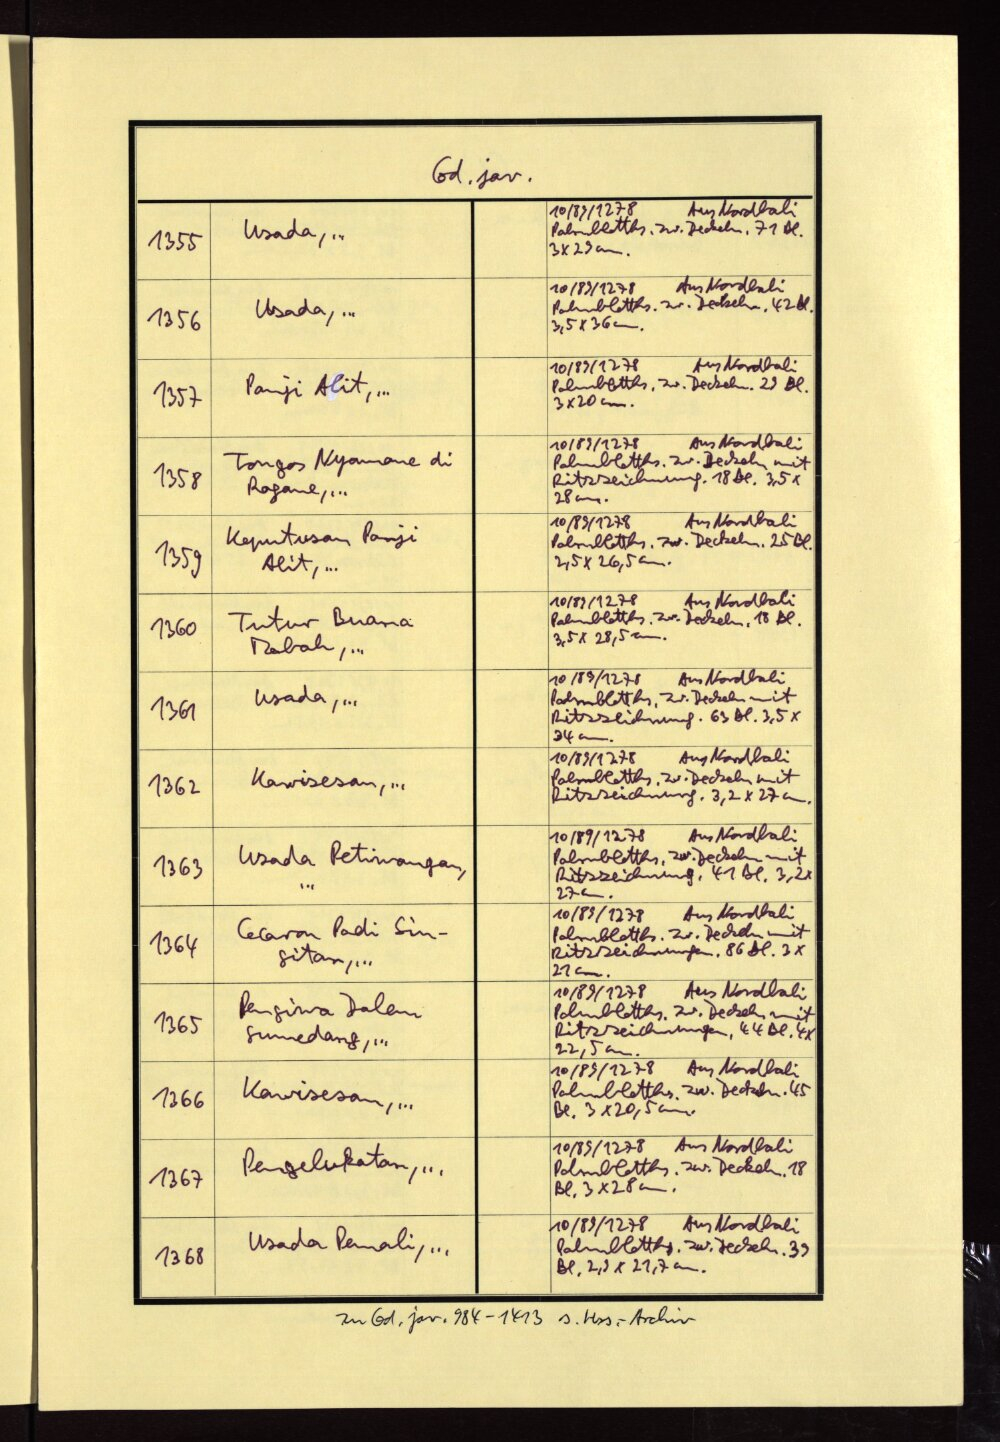 Cod. jav.
1355 Usada,...
10/89/1278 Aus Nordbali
Palmblatths. zw. Deckeln. 71 Bl.
3 x 29 cm.
1356 Usada,...
10/89/1278 Aus Nordbali
Palmblatths. zw. Deckeln. 42 Bl.
3,5 x 36 cm.
1357 Panji Alit,...
10/89/1278 Aus Nordbali
Palmblatths. zw. Deckeln. 29 Bl.
3 x 20 cm.
1358 Tongos Nyamane di
Ragane,...
10/89/1278 Aus Nordbali
Palmblatths. zw. Deckeln mit
Ritzzeichnung. 18 Bl. 3,5 x
28 cm.
1359 Keputusan Panji
Alit,...
10/89/1278 Aus Nordbali
Palmblatths. zw. Deckeln. 25 Bl.
2,5 x 26,5 cm.
1360 Tutur Buana
Mabah,...
10/89/1278 Aus Nordbali
Palmblatths. zw. Deckeln. 18 Bl.
3,5 x 28,5 cm.
1361 Usada,...
10/89/1278 Aus Nordbali
Palmblatths. zw. Deckeln mit
Ritzzeichnung. 63 Bl. 3,5 x
34 cm.
1362 Kawisesan,...
10/89/1278 Aus Nordbali
Palmblatths. zw. Deckeln mit
Ritzzeichnung. 3,2 x 27 cm.
1363 Usada Petiwangan,
...
10/89/1278 Aus Nordbali
Palmblatths. zw. Deckeln mit
Ritzzeichnung. 41 Bl. 3,2 x
27 cm.
1364 Cecaron Padi Sin-
gitan,...
10/89/1278 Aus Nordbali
Palmblatths. zw. Deckeln mit
Ritzzeichnungen. 86 Bl. 3 x
21 cm.
1365 Pengiwa Dalem
Sumedang,...
10/89/1278 Aus Nordbali
Palmblatths. zw. Deckeln mit
Ritzzeichnungen. 44 Bl. 4 x
22,5 cm.
1366 Kawisesan,...
10/89/1278 Aus Nordbali
Palmblatths. zw. Deckeln. 45
Bl. 3 x 20,5 cm.
1367 Pengelukatan,...
10/89/1278 Aus Nordbali
Palmblatths. zw. Deckeln. 18
Bl. 3 x 28 cm.
1368 Usada Pemali,...
10/89/1278 Aus Nordbali
Palmblatths. zw. Deckeln. 39
Bl. 2,9 x 21,7 cm.
zu Cod. jav. 984-1413 s. Hss.-Archiv